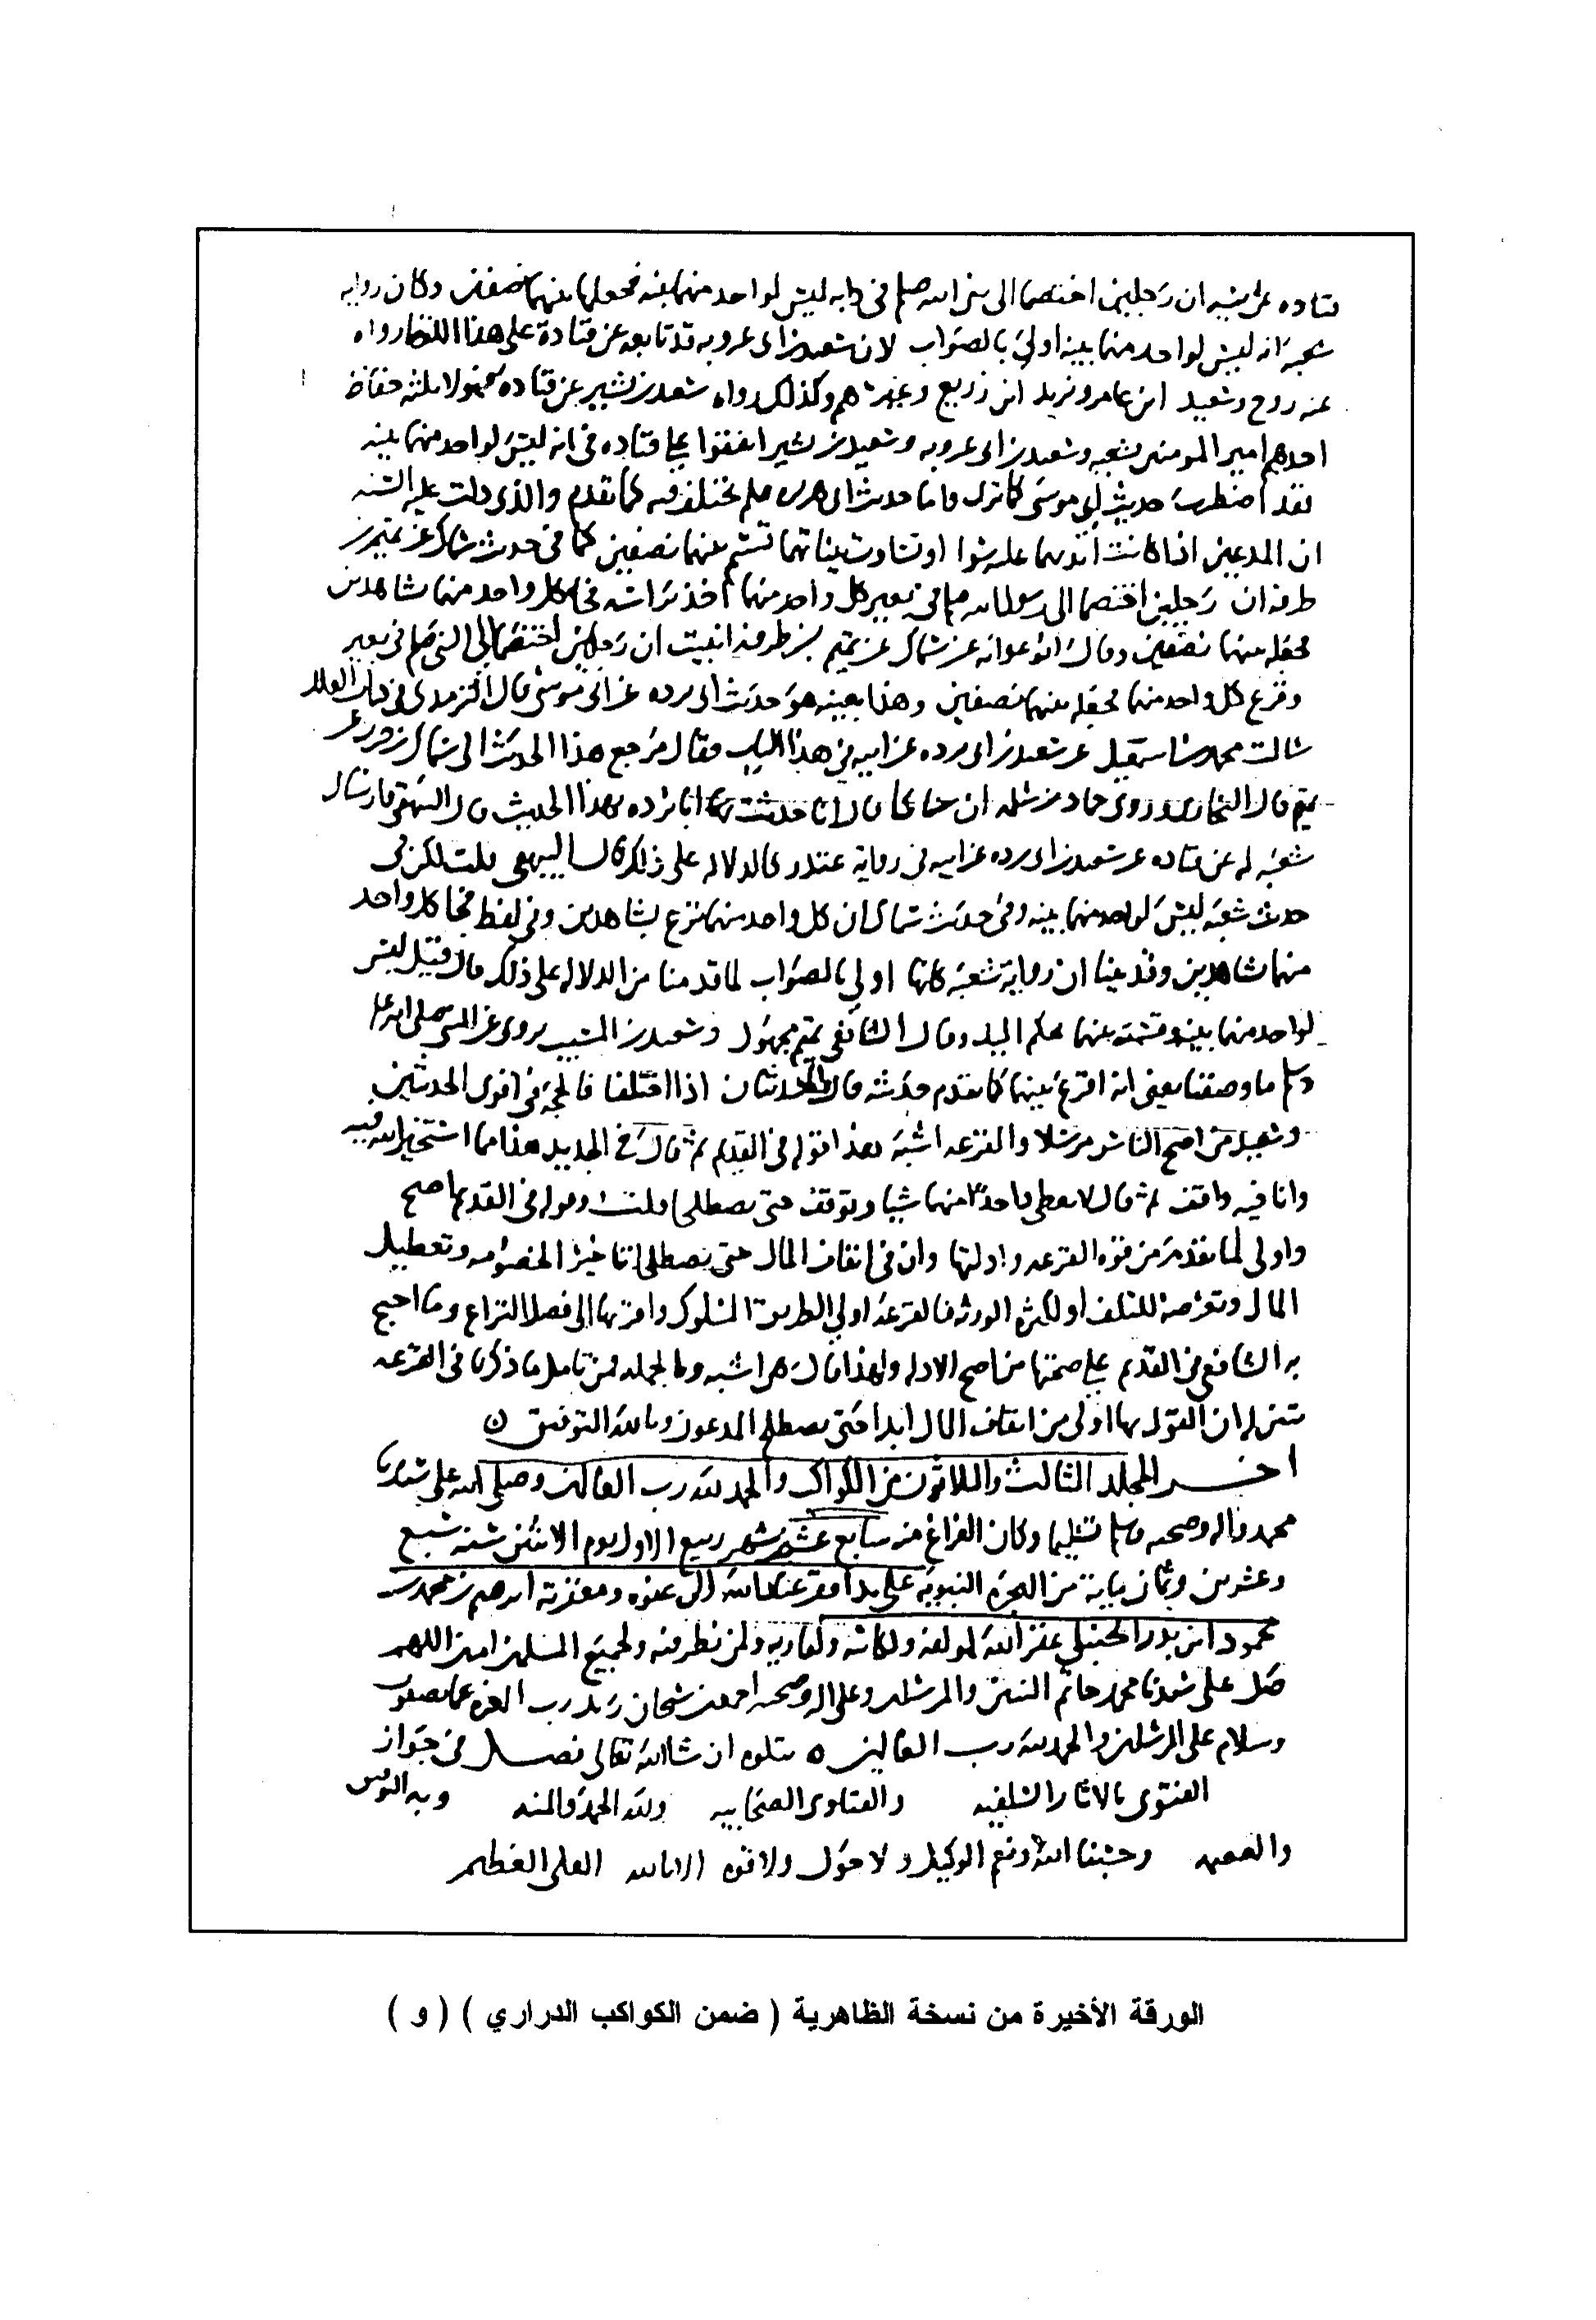 قتاده عن ابيه ان رجلين اختصما الى نبي الله صلم في دابه ليس لواحد منهما بينه فجعلها بينهما نصفين وكان روايه
شعبة انه ليس لواحد منهما بينه اولى بالصواب لان سعيد بن ابي عروبه قد تابعه عن قتادة على هذا اللفظ رواه
عنه روح وسعيد ابن عامر ويزيد ابن زريع وغيرهم وكذلك رواه سعيد بن بشير عن قتاده فهولا ثلثه حفاظ
احدهم امير المومنين شعبه وسعيد بن ابي عروبه وسعيد بن بشير اتفقوا على قتاده في انه ليس لواحد منهما بينه
فقد اضطرب حديث ابي موسى كما ترى واما حديث ابي هريره فلم يختلف فيه كما تقدم والذي دلت عليه السنه
ان المدعيين اذا كانت ايديهما عليه سوا او تساوت بيناتهما قسم بينهما نصفين كما في حديث سماك عن تميم بن
طرفه ان رجلين اختصما الى رسول الله صلم في بعير كل واحد منهما اخذ براسه فجا كل واحد منهما شاهدين
فجعله بينهما نصفين وقال ابو عوانه عن سماك عن تميم بن طرفه انبيت ان رجلين اختصما الى النبي صلم في بعير
ونزع كل واحد منهما فجعله بينهما نصفين وهذا بعينه هو حديث ابي برده عن ابي موسى قال الترمذي في كتاب العلل
سالت محمد بن اسمعيل عن سعيد بن ابي برده عن ابيه في هذا الباب فقال مرجع هذا الحديث الى سماك بن حرب عن
تميم قال البخاري وروى حماد بن سلمه ان سماكا قال انا حدثت ابا برده بهذا الحديث قال البيهقي وارسال
شعبه له عن قتاده عن سعيد بن ابي برده عن ابيه في رواية غندر كالدلاله على ذلك قال البيهقي قلت لكن في
حديث شعبه ليس لواحد منهما بينه وفي حديث سماك ان كل واحد منهما نزع بشاهدين وفي لفظ فجا كل واحد
منهما شاهدين وقد بينا ان رواية شعبه كانها اولى بالصواب لما قدمنا من الدلاله على ذلك قال فقيل ليس
لواحد منهما بينه وقسمته بينهما بحكم اليد وقال الشافعي تميم مجهول وسعيد بن المسيب يروى عن النبي صلى الله عليه
وسلم ما وصفنا يعني انه اقرع بينهما كما تقدم حديثه قال والحديثان اذا اختلفا فالحجه في اقوى الحديثين
وسعيد من اصح الناس مرسلا والقرعه اشبه هذا قوله في القديم ثم قال في الجديد هذا مما استخير الله فيه
وانا فيه واقف ثم قال لا يعطى واحد منهما شيا ويوقف حتى يصطلحا قلت وقوله في القديم اصح
واولى لما تقدم من قوه القرعه وادلتها وان في ايقاف المال حتى يصطلحا تاخير الخصومه وتعطيل
المال وتعرضه للتلف او لكثرة الورثه فالقرعه اولى الطرق للسلوك واقربها الى فصل النزاع وما احتج
به الشافعي في القديم على صحتها من اصح الادله ولهذا قال هي اشبه وبالجمله فمن تامل ما ذكرنا في القرعه
تبين له ان القول بها اولى من ايقاف المال ابدا حتى يصطلح المدعون وبالله التوفيق
اخر المجلد الثالث والثلاثون من الكواكب والحمد لله رب العالمين وصلى الله على سيدنا
محمد واله وصحبه وسلم تسليما وكان الفراغ منه سابع عشر شهر ربيع الاول يوم الاثنين سنه سبع
وعشرين وثمان مايه من الهجره النبويه على يد افقر عباد الله الى عفوه ومغفرته ابرهيم بن محمد بن
محمود ابن بدر الحنبلي غفر الله لمولفه ولكاتبه ولقاريه ولمن نظر فيه ولجميع المسلمين امين اللهم
صل على سيدنا محمد خاتم النبيين والمرسلين وعلى اله وصحبه اجمعين سبحان ربك رب العزه عما يصفون
وسلام على المرسلين والحمد لله رب العالمين ه يتلوه ان شا الله تعالى فصل في جواز
الفتوى بالاثار السلفيه والفتاوى الصحابيه ولله الحمد والمنه وبه التوفيق
والعصمه وحسبنا الله ونعم الوكيل ولا حول ولا قوه الا بالله العلي العظيم
الورقة الأخيرة من نسخة الظاهرية ( ضمن الكواكب الدراري ) ( و )